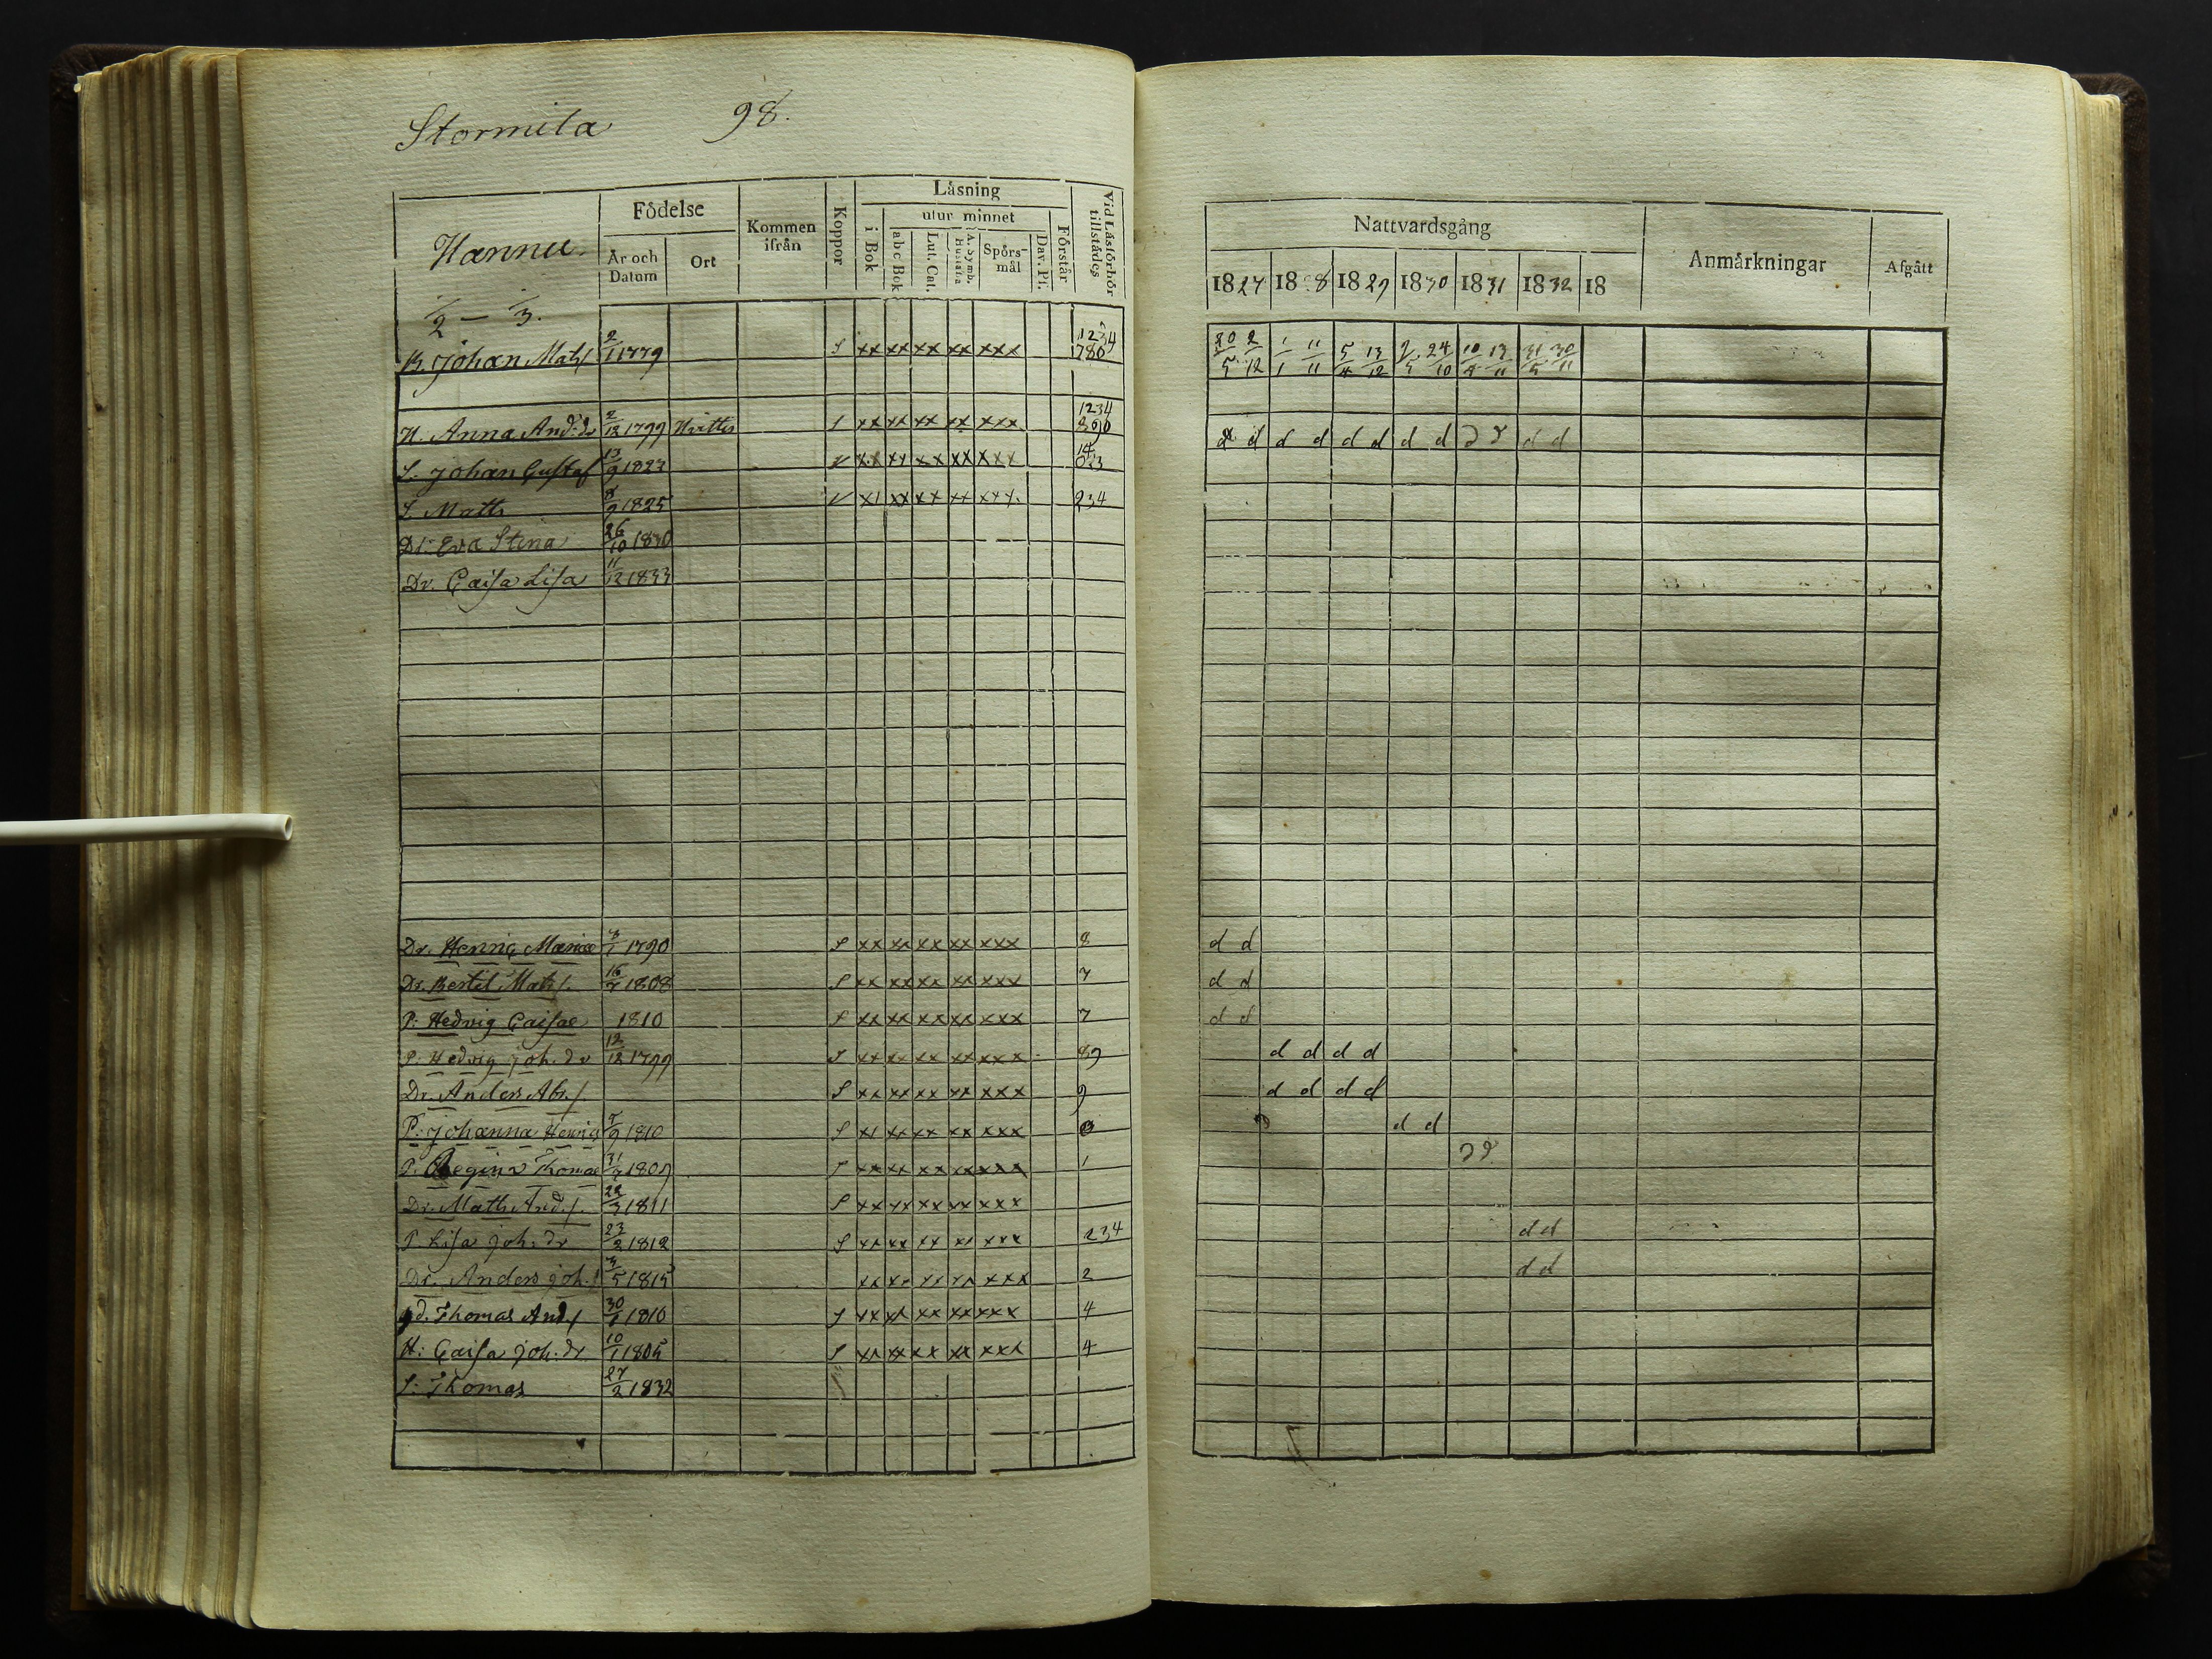 Stormila 98.
Hannu.
Födelse
År och Datum
Ort
Kommen ifrån
Koppor
Låsning
i Bok
utur minnet
a b c Bok
Lut. Cat.
A. Symb. Hustafla
Spörs-mål
Dav. Ps.
Förstår
Vid Låsförhör tillstådes
1/2 — 1/3.
B. Johan Mats/ 2/1 1779 S xx xx xx xx xxx 1234 1780
H. Anna And:dr 2/12 1799 Hvittis S xx xx xx xx xxx 1234 890
S. Johan Gustaf 13/9 1823 V xx xx xx xx xxx
S. Matts 8/9 1825 V x1 xx xx xx xxx. 234
Dr: Eva Stina 26/10 1830
Dr. Caisa Lisa 11/12 1833
Dr. Henric 1790 S xx xx xx xx xxx 8
Dr. Bertil Mats/. 16/7 1808 S xx xx xx xx xxx 7
P: Hedvig Caisae 1810 S xx xx xx xx xxx 7
P: Hedvig Joh. dr 12/12 1799 S xx xx xx xx xxx 89
Dr. Anders Abr./ S xx xx xx xx xxx 9
P: Johanna Henrics 1810 S x1 xx xx xx xxx 0
P: Regina Thomae 31/7 1809 S xx xx xx xx xxx 1
Dr. Matts And./. 1811 S xx xx xx xx xxx
P Lisa Joh: dr 23/2 1812 S xx xx xx xx xxx 234
Dr. Anders Joh./ 1815 xx xx xx xx xxx 2
Thomas And/ 1810 S xx xx xx xx xxx 4
H: Caisa Joh: dr 10/1 1805 S xx xx xx xx xxx 4
S: Thomas 27/2 1832
Nattvardsgång
Anmärkningar
Afgått
1827 1828 1829 1830 1831 1832 18
20/5 2/12 1/1 11/11 5/4 13/12 2/5 24/10 13/11 31/5 30/11
d d d d d d d d d d d d
d d
d d
d d
d d d d
d d d d
d d
d d
d d
d d